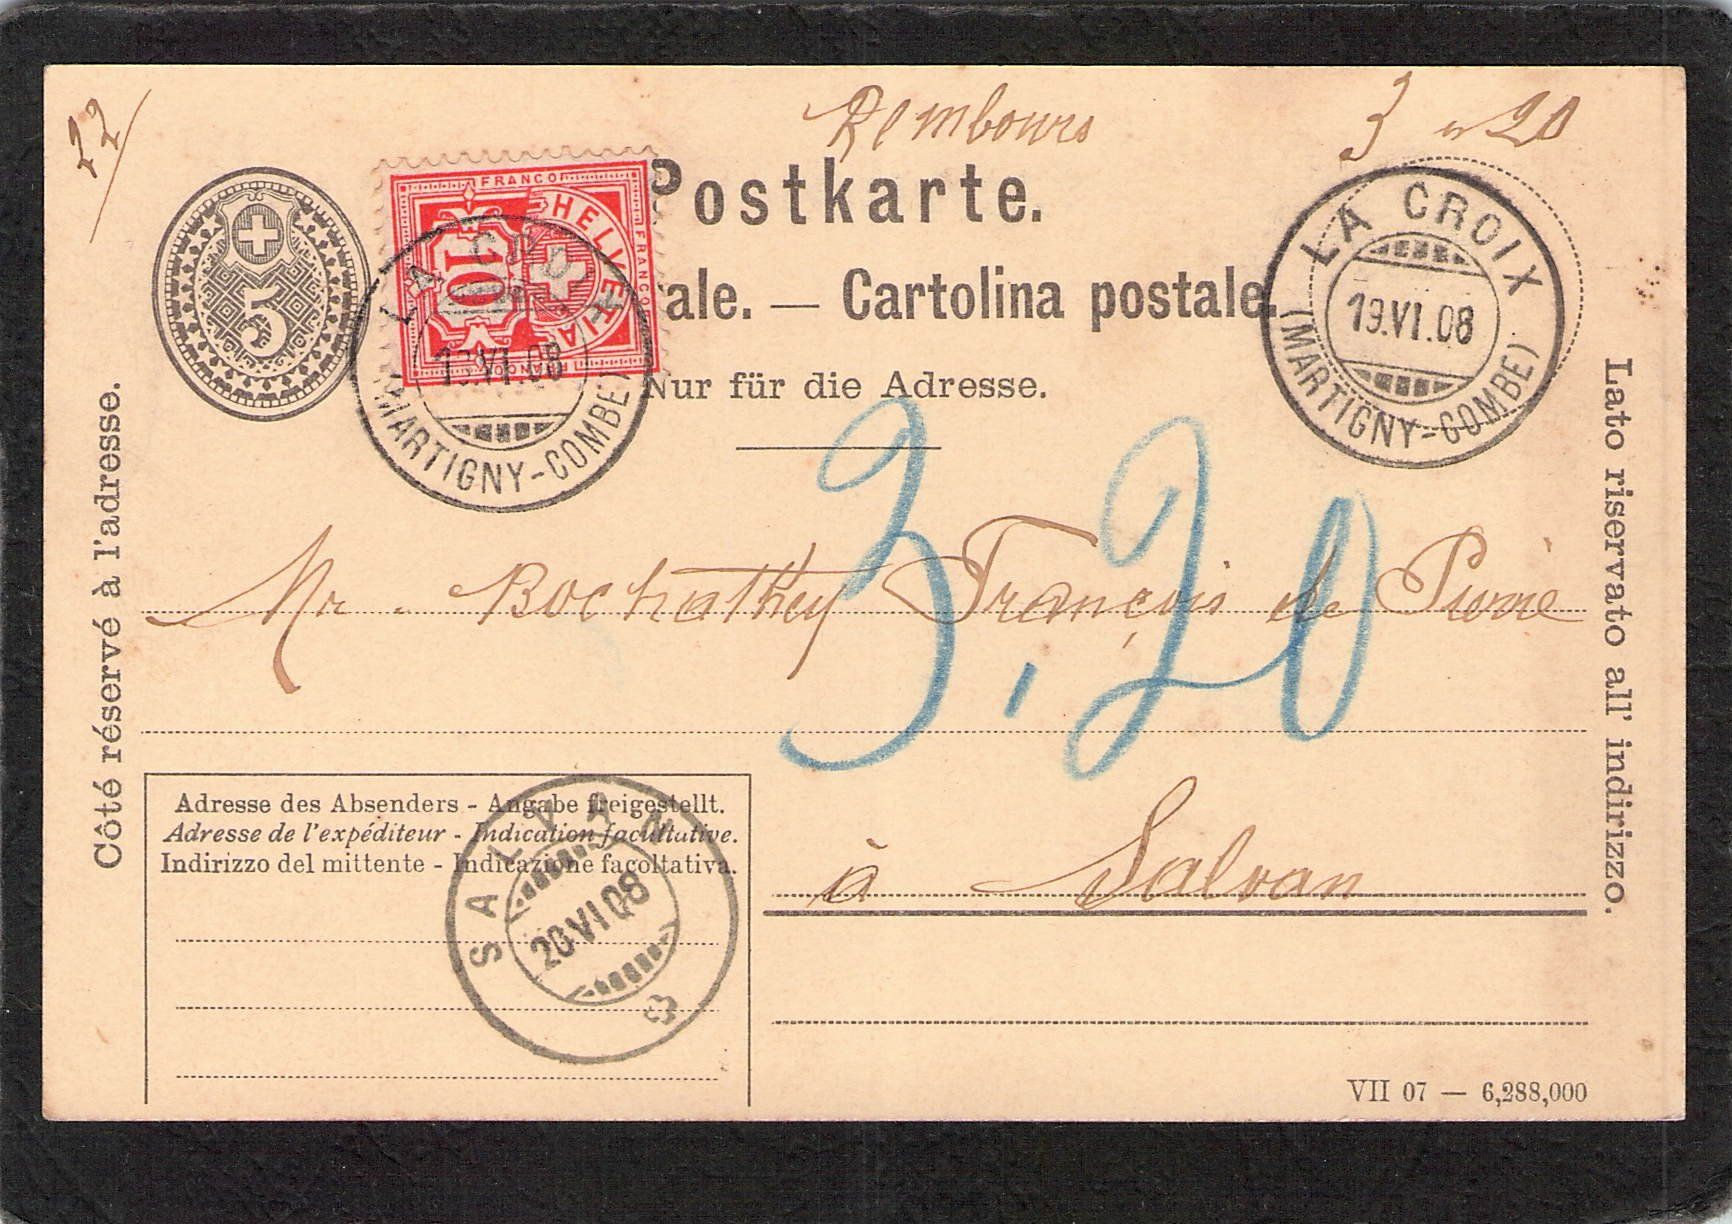 22/
Rembours 3 20
FRANCO
HELVETIA
10
FRANCO
FRANCO
5
Postkarte.
ale. — Cartolina postale.
Nur für die Adresse.
LA CROIX
13.VI.08
(MARTIGNY-COMBE)
LA CROIX
19.VI.08
(MARTIGNY-COMBE)
Côté réservé à l'adresse.
Lato riservato all' indirizzo.
3,20
Mr. Bochathey François de
à Salvan
Adresse des Absenders - Angabe freigestellt.
Adresse de l'expéditeur - Indication facultative.
Indirizzo del mittente - Indicazione facoltativa.
SALVAN
20.VI.08
VII 07 — 6,288,000